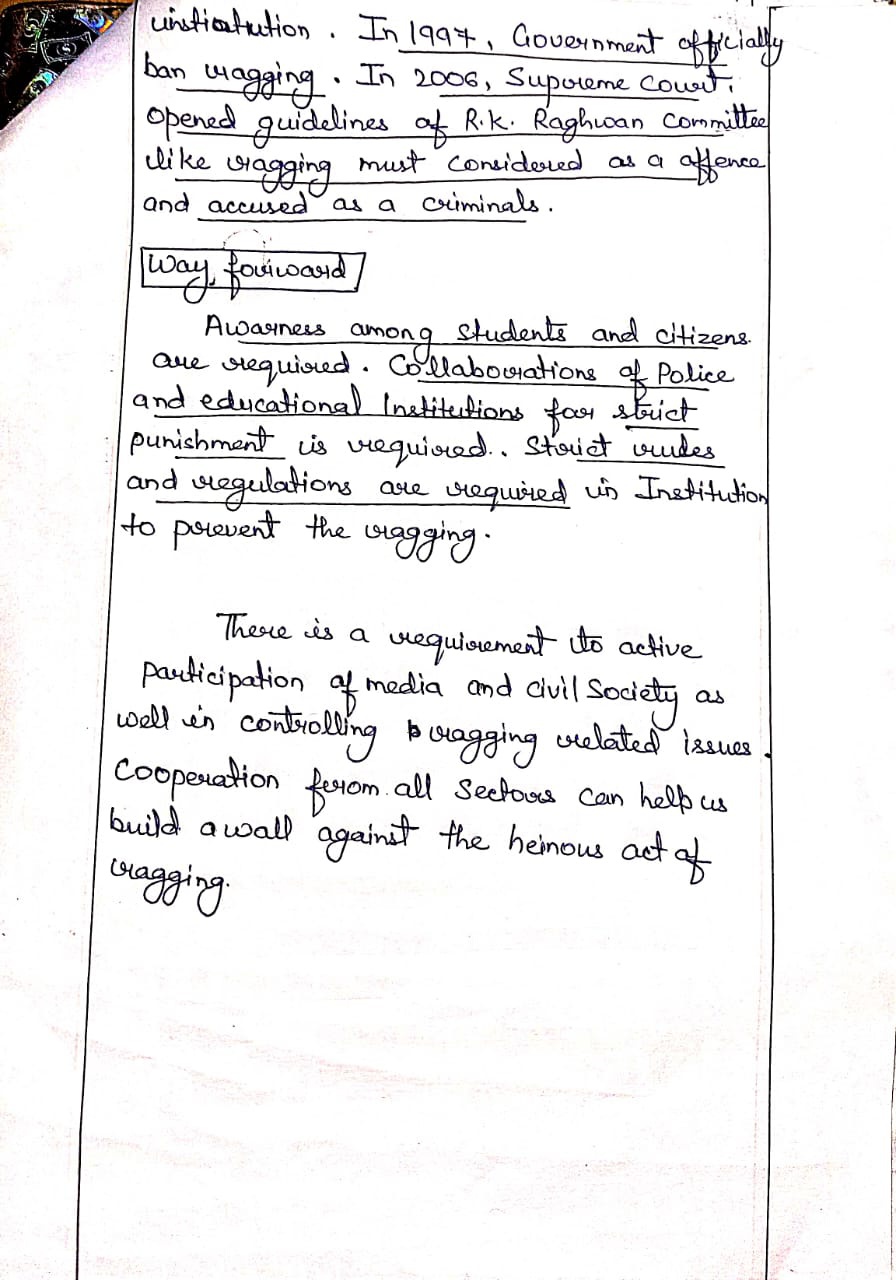 institution. In 1997, Government officially
ban ragging. In 2006, Supreme Court
opened guidelines of R.K. Raghwan Committee
like ragging must considered as a offence
and accused as a criminals.
Way forward
Awarness among students and citizens.
are required. Collaborations of Police
and educational Institutions for strict
punishment is required.. Strict rules
and regulations are required in Institution
to prevent the ragging.
There is a requirement to active
participation of media and civil Society as
well in controlling ragging related issues.
Cooperation from all Sectors can help us
build a wall against the heinous act of
ragging.